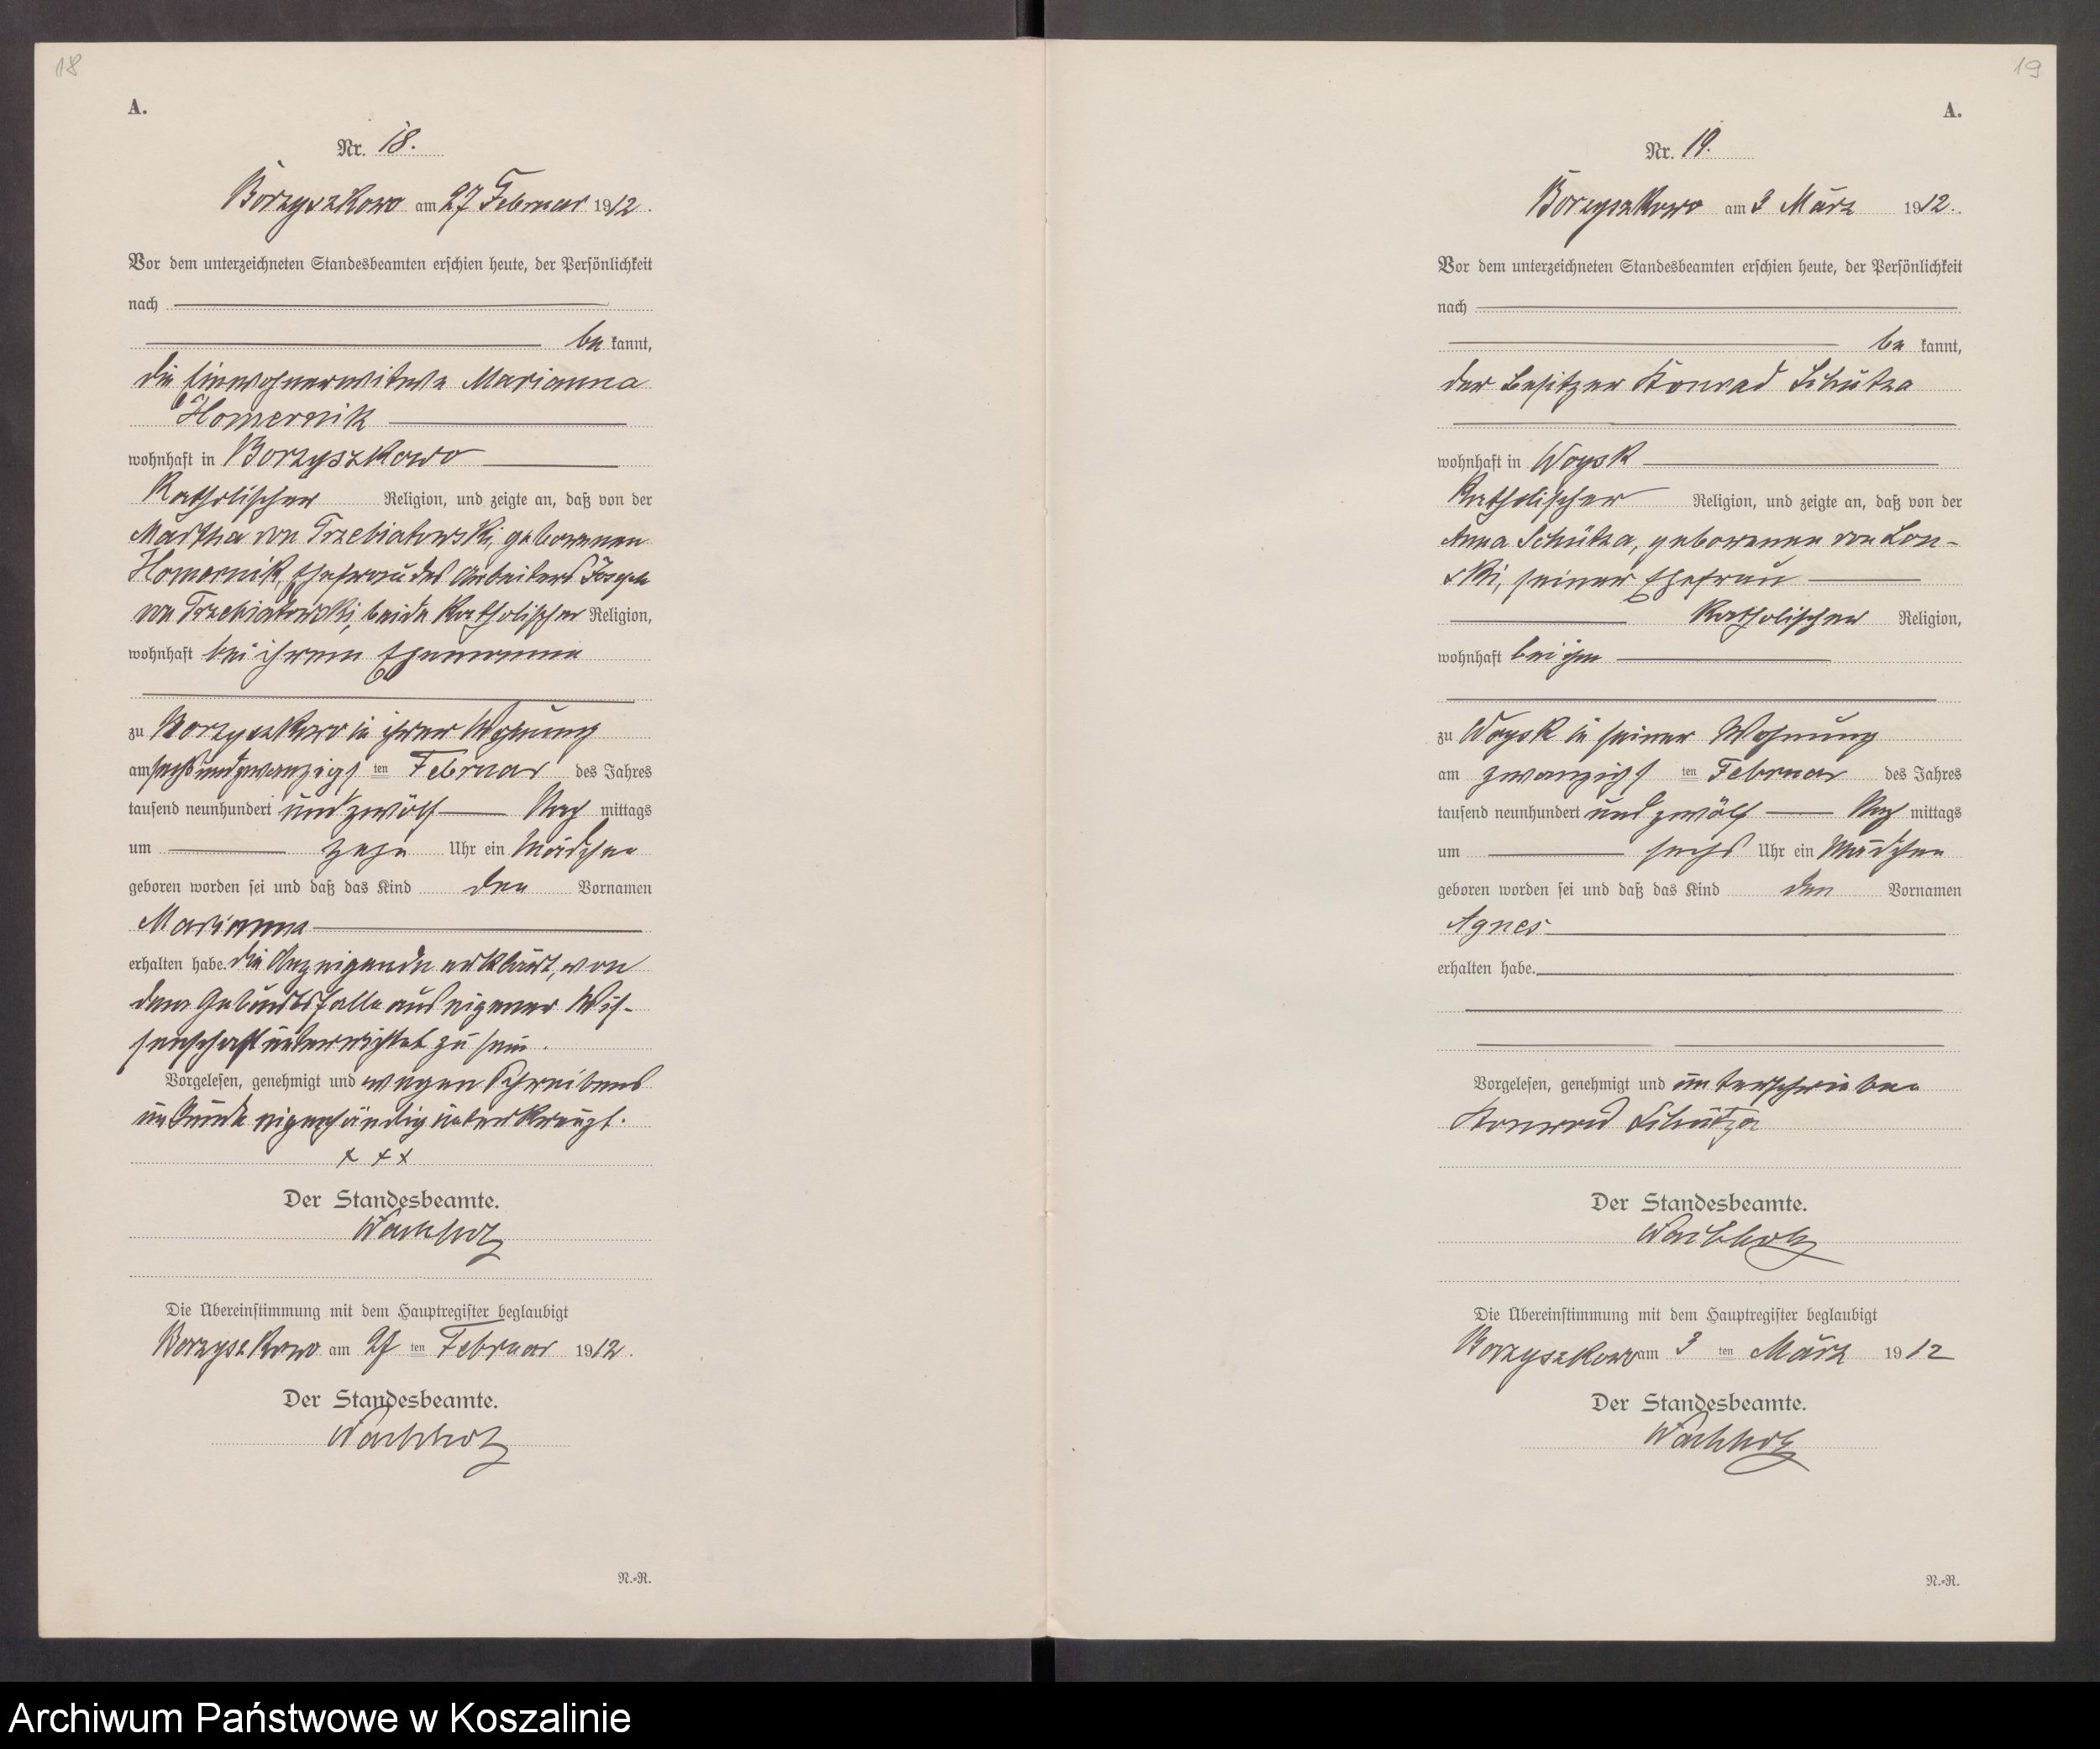 18
A.
Nr. 18.
Borzyszkowo am 27 Februar 1912.
Vor dem unterzeichneten Standesbeamten erschien heute, der Persönlichkeit
nach
be kannt,
die Einwohnerwitwe Marianna
Homernik
wohnhaft in Borzyszkowo
Katholischer Religion, und zeigte an, daß von der
Martha von Trzebiatowski, geborenen
Homernik, Ehefrau des Arbeiters Joseph
von Trzebiatowski, beide Katholischer Religion,
wohnhaft bei ihrem Ehemanne
zu Borzyszkowo in ihrer Wohnung
am sechsundzwanzigsten Februar des Jahres
tausend neunhundert und zwölf Nach mittags
um zehn Uhr ein Mädchen
geboren worden sei und daß das Kind den Vornamen
Marianna
erhalten habe. Die Anzeigende erklärt, von
dem Geburtsfalle aus eigener Wis-
senschaft unterrichtet zu sein.
Vorgelesen, genehmigt und wegen Schreibens
unkunde eigenhändig unterkreuzt.
x x x
Der Standesbeamte.
Wachholz
Die Übereinstimmung mit dem Hauptregister beglaubigt
Borzyszkowo am 27 ten Februar 1912.
Der Standesbeamte.
Wachholz
N.-R.
19
A.
Nr. 19.
Borzyszkowo am 3 März 1912.
Vor dem unterzeichneten Standesbeamten erschien heute, der Persönlichkeit
nach
be kannt,
der Besitzer Konrad Schütza
wohnhaft in Woysk
Katholischer Religion, und zeigte an, daß von der
Anna Schütza, geborenen von Lon-
ski, seiner Ehefrau
Katholischer Religion,
wohnhaft bei ihm
zu Woysk in seiner Wohnung
am zwanzigsten Februar des Jahres
tausend neunhundert und zwölf Nach mittags
um sechs Uhr ein Mädchen
geboren worden sei und daß das Kind den Vornamen
Agnes
erhalten habe.
Vorgelesen, genehmigt und unterschrieben
Konrad Schütza
Der Standesbeamte.
Wachholz
Die Übereinstimmung mit dem Hauptregister beglaubigt
Borzyszkowo am 3 ten März 1912
Der Standesbeamte.
Wachholz
N.-R.
Archiwum Państwowe w Koszalinie